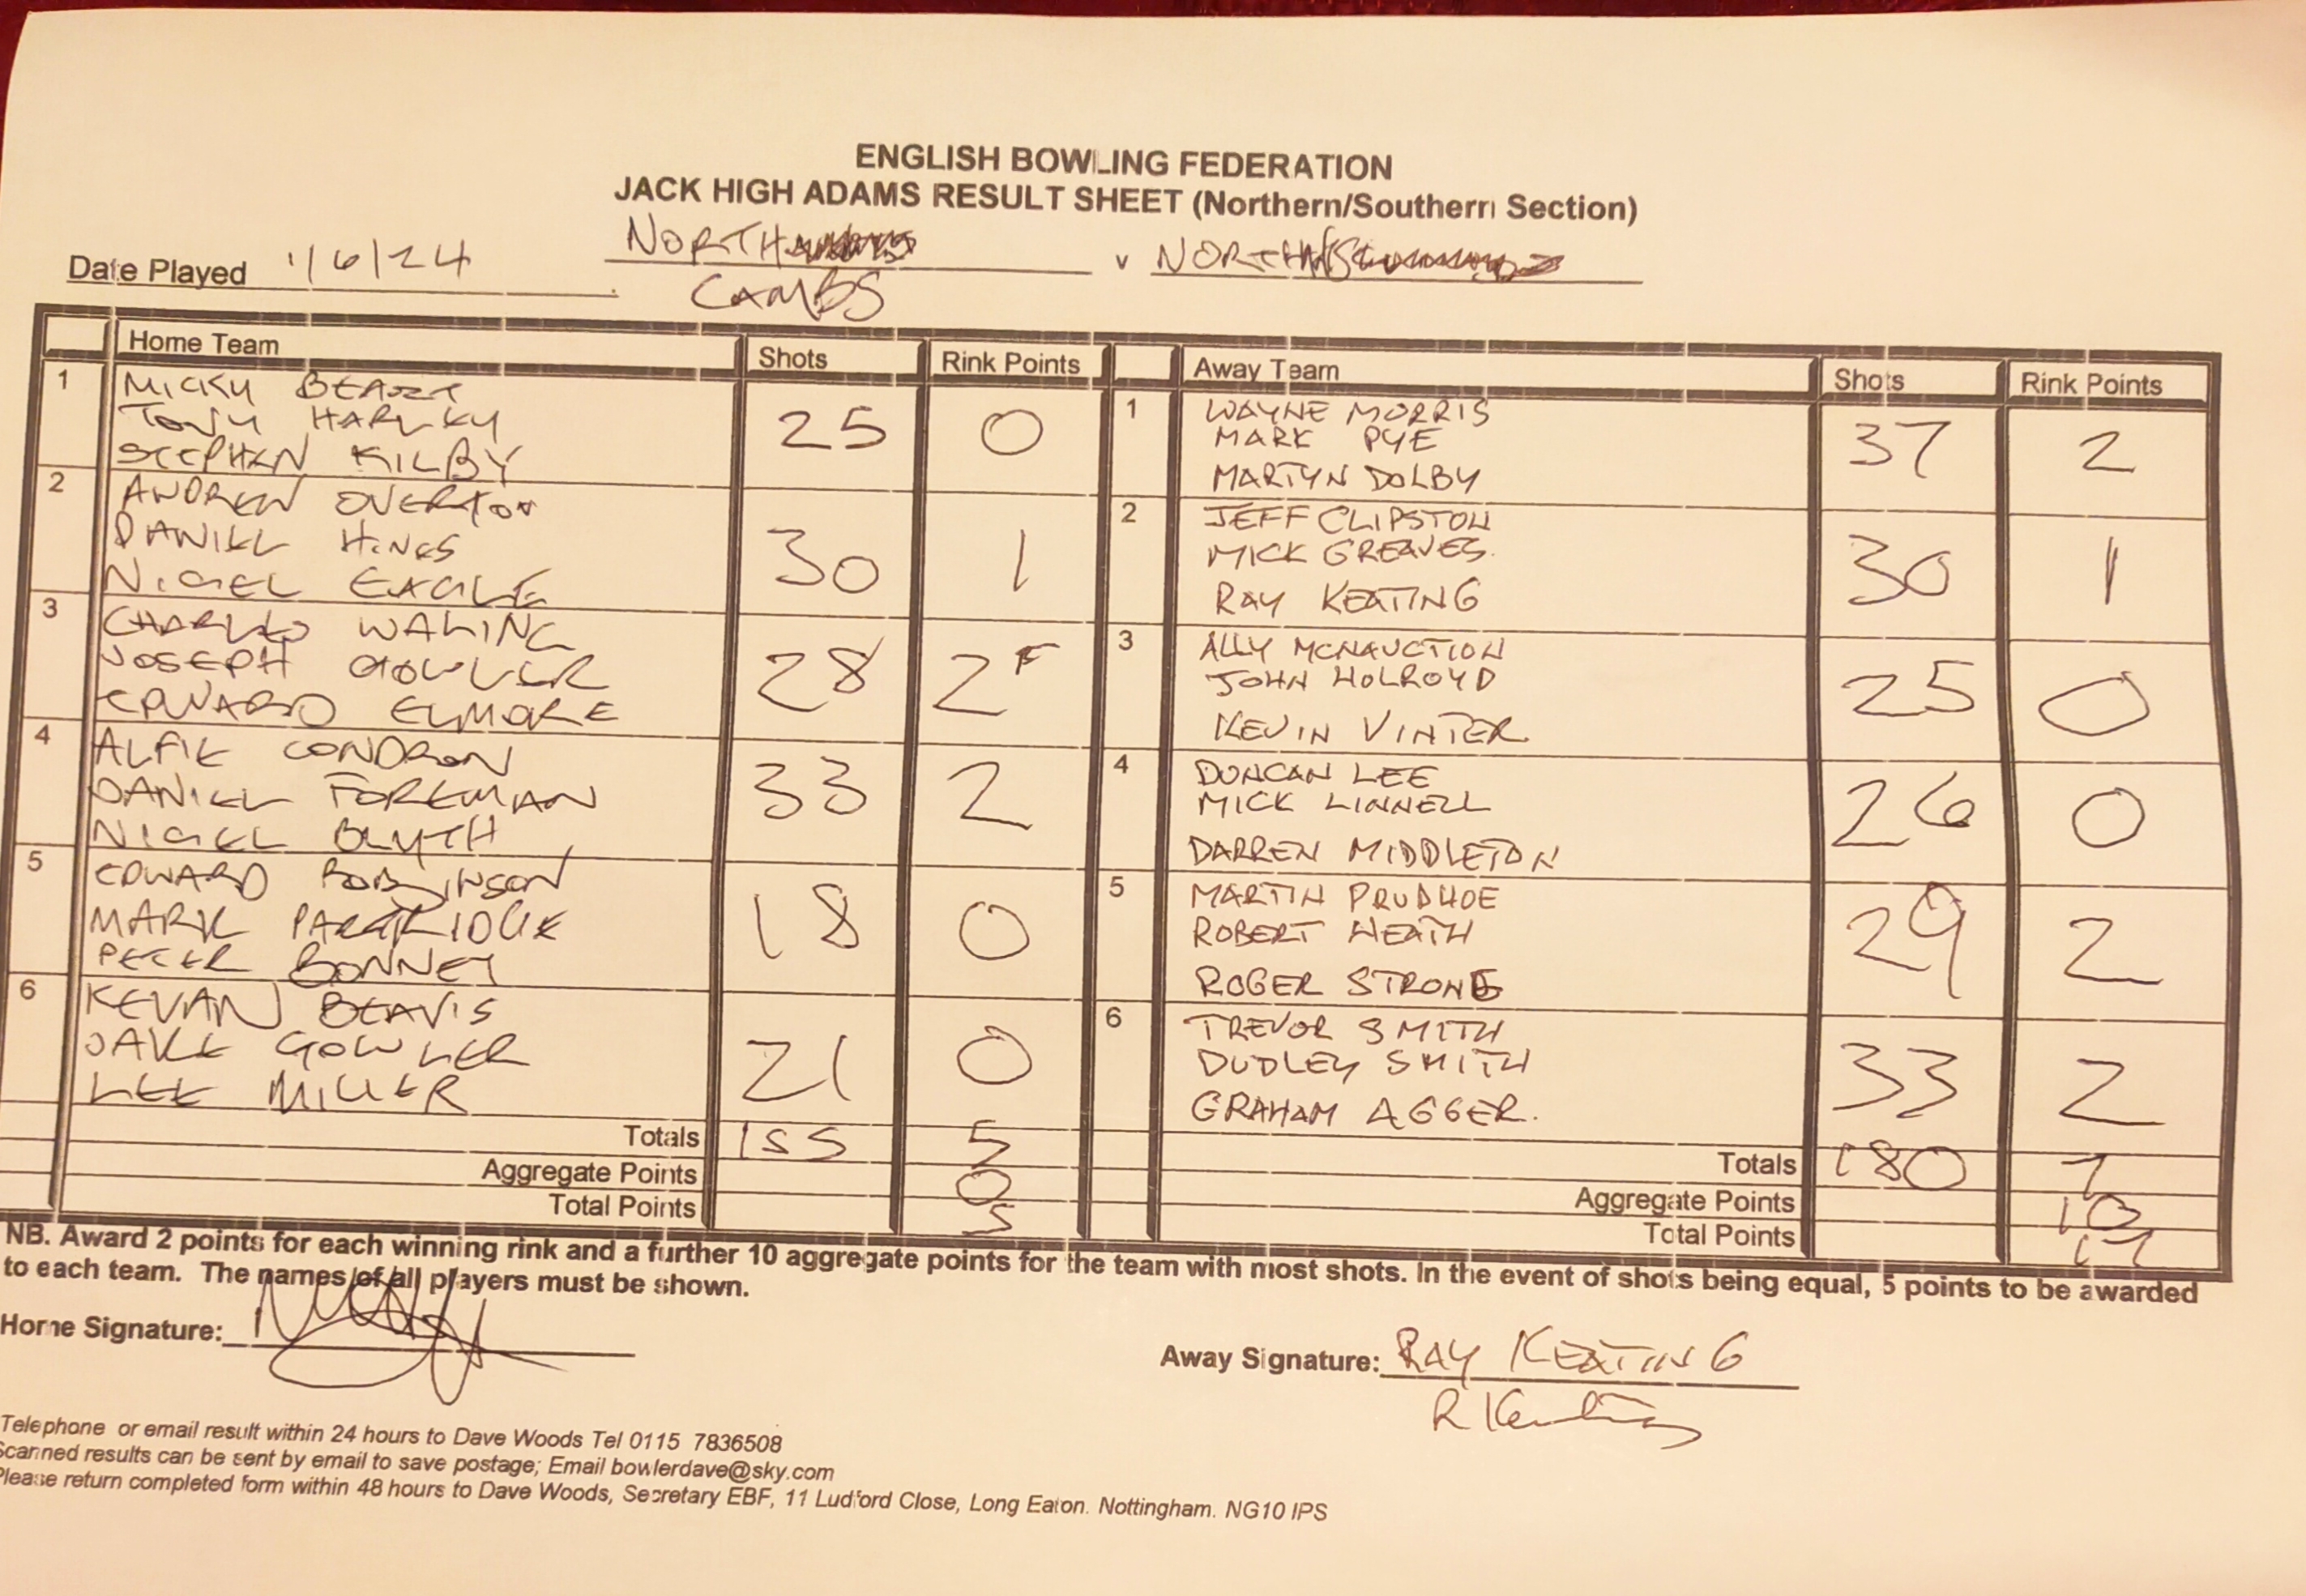 ENGLISH BOWLING FEDERATION
JACK HIGH ADAMS RESULT SHEET (Northern/Southern Section)
Date Played 1/6/24 NORTH v NORTH
CAMBS
Home Team Shots Rink Points Away Team Shots Rink Points
1 MICKY 25 0 1 WAYNE MORRIS 37 2
TONY MARK PYE
STEPHEN KILBY MARTYN DOLBY
2 ANDREW OVERTON 30 1 2 JEFF CLIPSTON 30 1
DANIEL HINES MICK GREAVES.
NIGEL EAGLE RAY KEATING
3 CHARLES WALING 28 2 F 3 ALLY MCNAUCTION 25 0
JOSEPH GOWLER JOHN HOLROYD
EDWARD ELMORE KEVIN VINTER.
4 ALFIE CONDRON 33 2 4 DUNCAN LEE 26 0
DANIEL FOREMAN MICK LINNELL
NIGEL BLYTH DARREN MIDDLETON
5 EDWARD ROBINSON 18 0 5 MARTIN PRUDHOE 29 2
MARK PARTRIDGE ROBERT HEATH
PETER BONNEY ROGER STRONG
6 KEVAN BEAVIS 21 0 6 TREVOR SMITH 33 2
JAKE GOWLER DUDLEY SMITH
LEE MILLER GRAHAM AGGER.
Totals 155 5 Totals 180 7
Aggregate Points 0 Aggregate Points 10
Total Points 5 Total Points 17
NB. Award 2 points for each winning rink and a further 10 aggregate points for the team with most shots. In the event of shots being equal, 5 points to be awarded
to each team. The names of all players must be shown.
Home Signature: Away Signature: RAY KEATING
R Keating
Telephone or email result within 24 hours to Dave Woods Tel 0115 7836508
Scanned results can be sent by email to save postage; Email bowlerdave@sky.com
Please return completed form within 48 hours to Dave Woods, Secretary EBF, 11 Ludford Close, Long Eaton. Nottingham. NG10 IPS